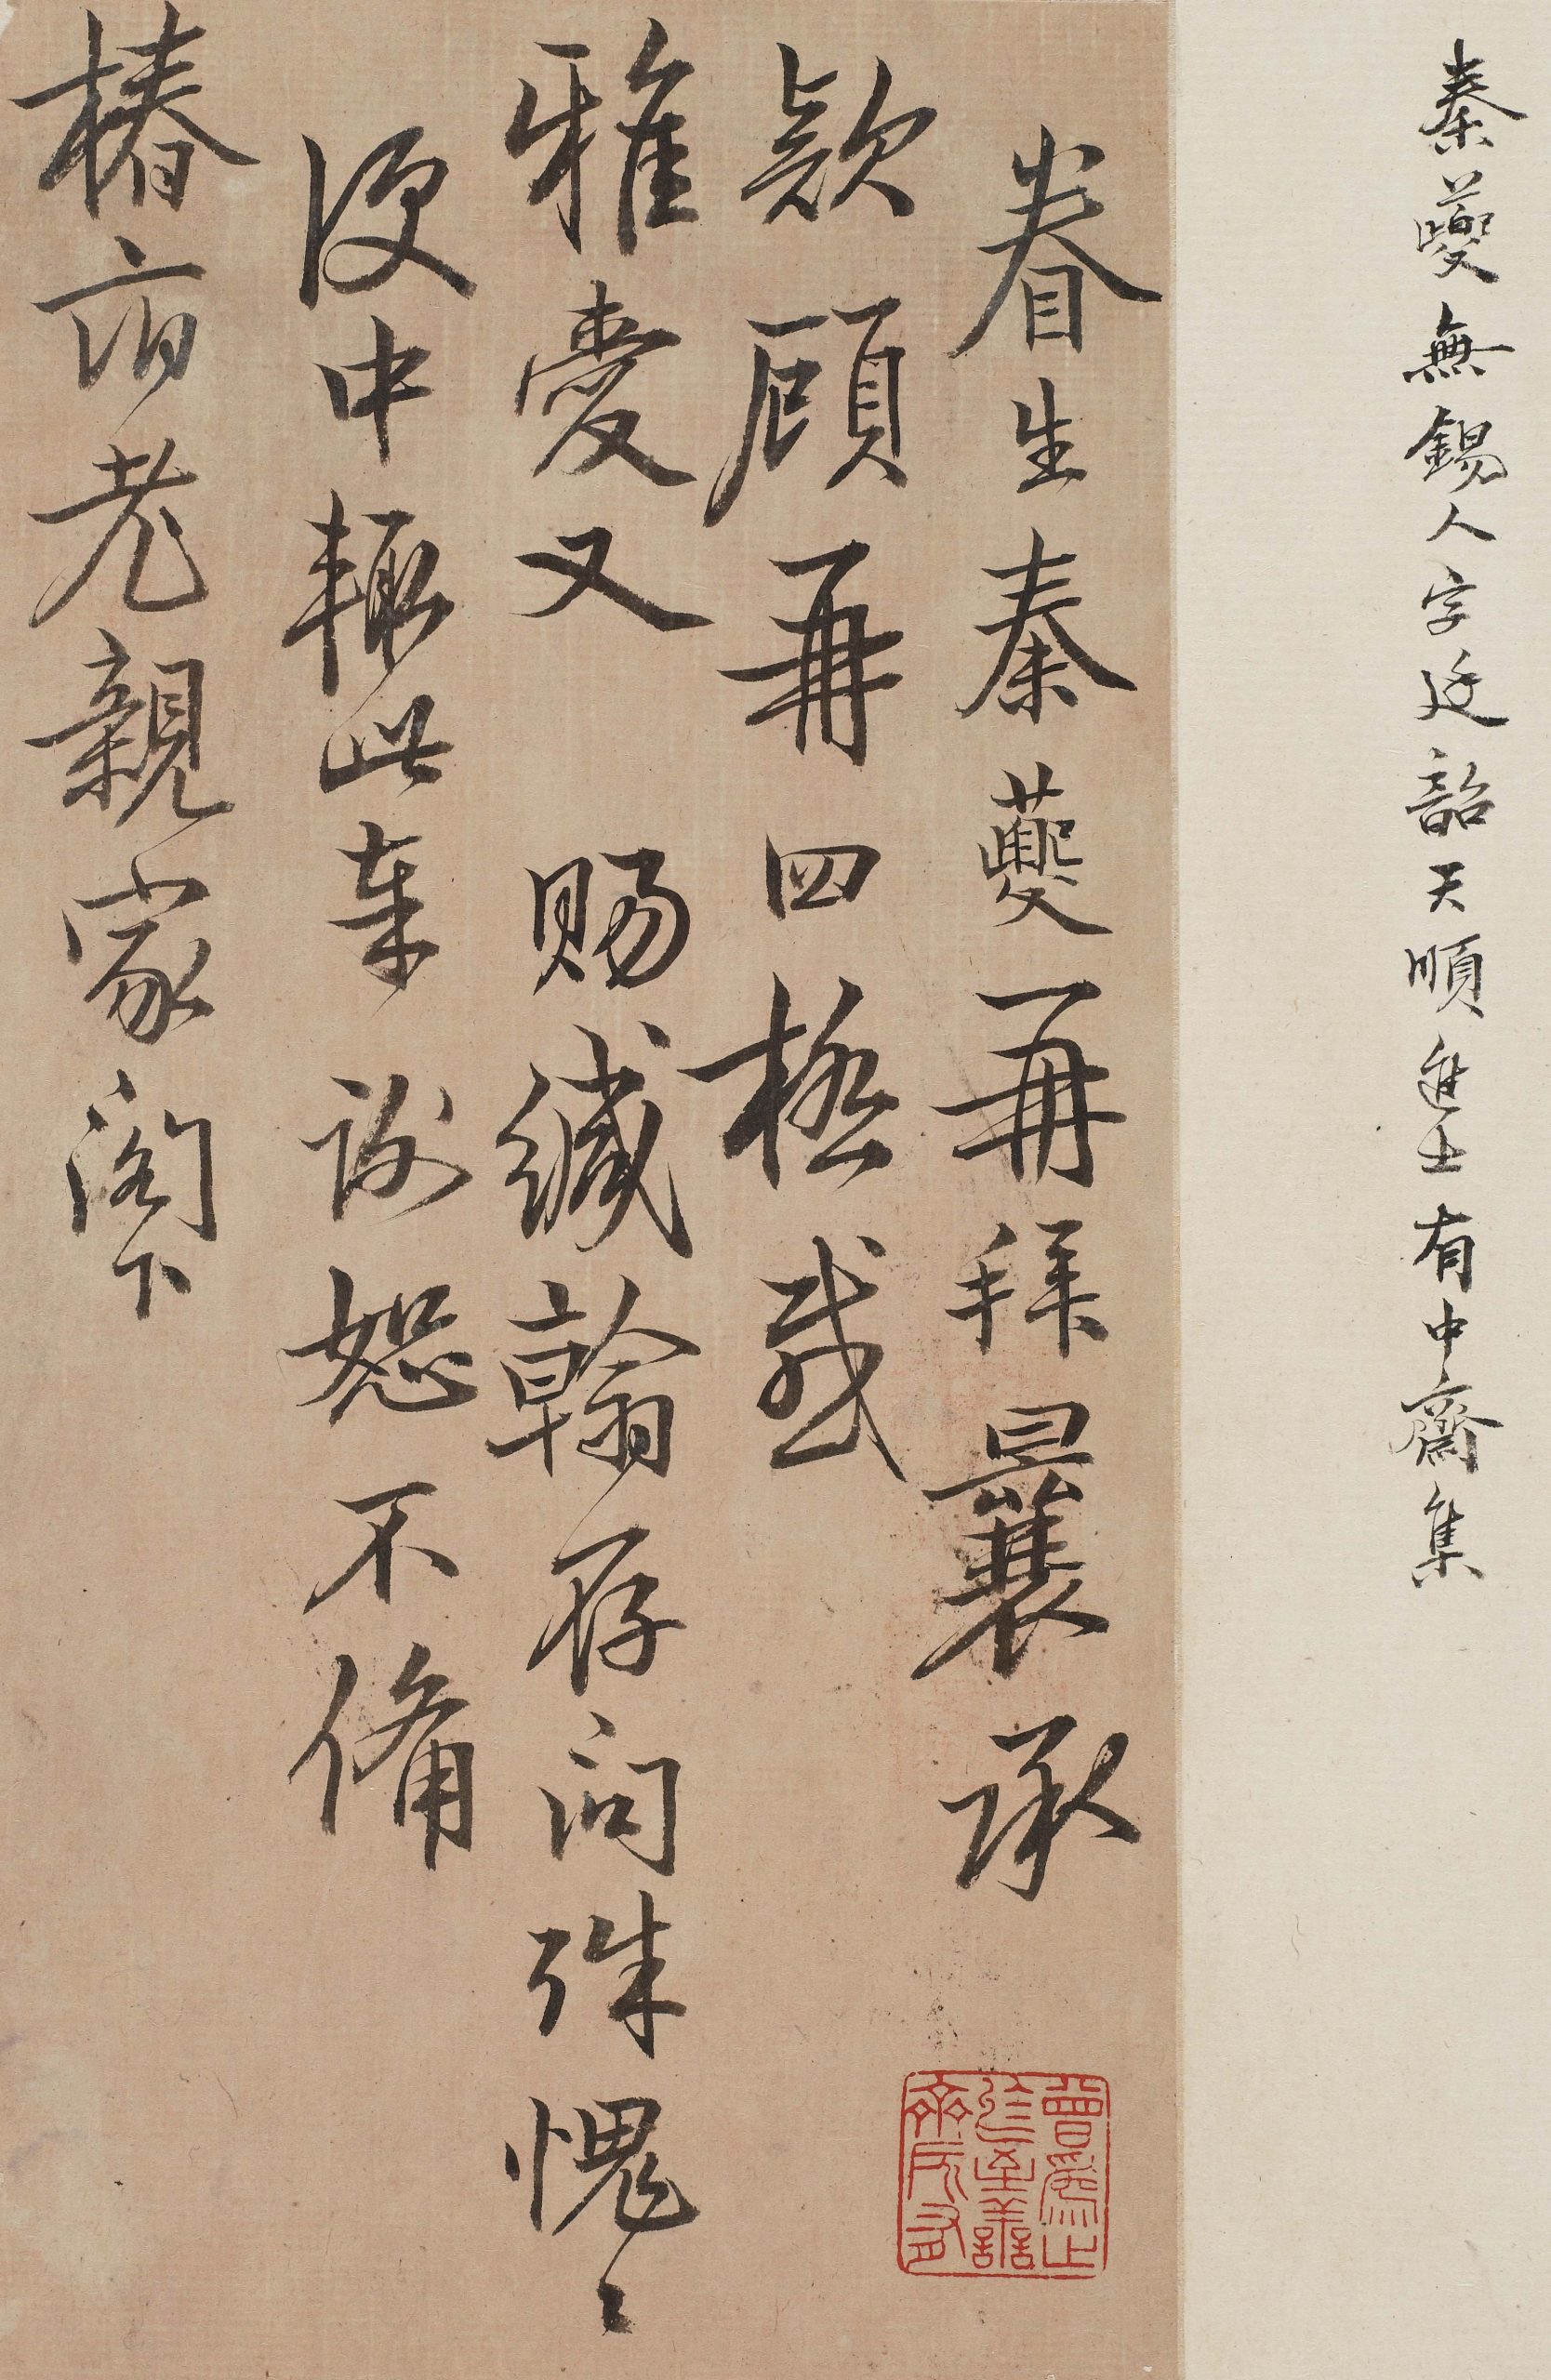 秦夔無錫人字廷韶天順進士有中齋集
眷生秦夔再拜曩承
款顧再四極感
雅愛又 賜緘翰存問殊愧〻
便中輒此奉謝恕不備
椿府老親家閣下
曾為止
至善
齋所